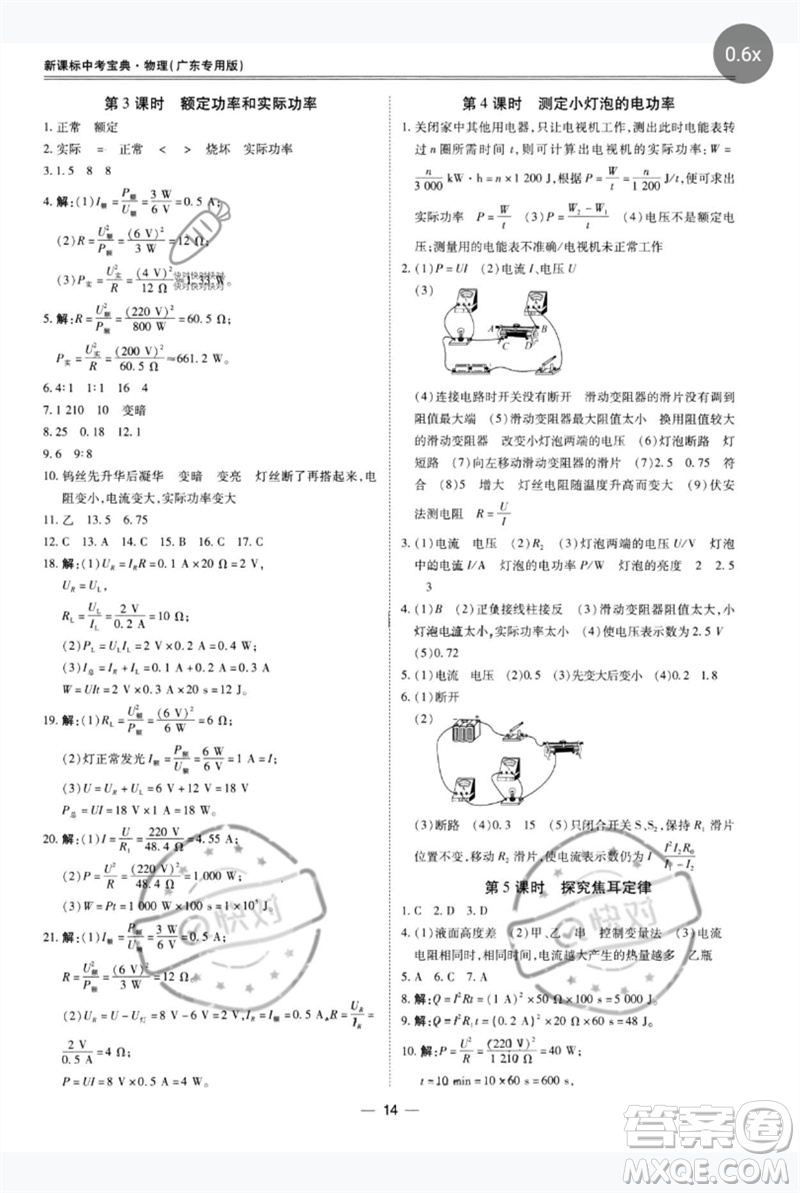 0.6x
新课标中考宝典·物理(广东专用版)
第3课时 额定功率和实际功率
1. 正常 额定
2. 实际 = 正常 < > 烧坏 实际功率
3. 1.5 8 8
4. 解:(1)I额=P额/U额=3 W/6 V=0.5 A;
(2)R=U²额/P额=(6 V)²/3 W=12 Ω;
(3)P实=U²实/R=(4 V)²/12 Ω≈1.33 W。
5. 解:R=U²额/P额=(220 V)²/800 W=60.5 Ω;
P实=U²实/R=(200 V)²/60.5 Ω≈661.2 W。
6. 4∶1 1∶1 16 4
7. 1 210 10 变暗
8. 25 0.18 12.1
9. 6 9∶8
10. 钨丝先升华后凝华 变暗 变亮 灯丝断了再搭起来,电
阻变小,电流变大,实际功率变大
11. 乙 13.5 6.75
12. C 13. A 14. C 15. B 16. B 17. C
18. 解:(1)U_R=I_R R=0.1 A×20 Ω=2 V,
U_R=U_L,
R_L=U_L/I_L=2 V/0.2 A=10 Ω;
(2)P_L=U_L I_L=2 V×0.2 A=0.4 W;
(3)I总=I_R+I_L=0.1 A+0.2 A=0.3 A
W=UIt=2 V×0.3 A×20 s=12 J。
19. 解:(1)R_L=U²额/P额=(6 V)²/6 W=6 Ω;
(2)灯正常发光I额=P额/U额=6 W/6 V=1 A=I;
(3)U=U_R+U_L=6 V+12 V=18 V
P总=UI=18 V×1 A=18 W。
20. 解:(1)I=U/R₁=220 V/48.4 Ω≈4.55 A;
(2)P=U²/R=(220 V)²/48.4 Ω=1 000 W;
(3)W=Pt=1 000 W×100 s=1×10⁵ J。
21. 解:(1)I额=P额/U额=3 W/6 V=0.5 A
R=U²额/P额=(6 V)²/3 W=12 Ω;
(2)U_R=U-U灯=8 V-6 V=2 V I=I额=0.5 A,R=U_R/I_R=
2 V/0.5 A=4 Ω
P=UI=8 V×0.5 A=4 W。
第4课时 测定小灯泡的电功率
1. 关闭家中其他用电器,只让电视机工作,测出此时电能表在
转过 n 圈所用时间 t,则可计算出电视机的实际功率:W=
n/3 000 kW·h=n×1 200 J,根据 P=W/t=n/t 1 200 J,便可求出
实际功率 P=W/t (3)P=(W₂-W₁)/t (4)电压不是额定电
压;测量用的电能表不准确/电视机未正常工作
2. (1)P=UI (2)电流 I、电压 U
(3)
A B C D
(4)连接电路时开关没有断开 滑动变阻器的滑片没有调到
阻值最大端 (5)滑动变阻器最大阻值太小 换用阻值较大
的滑动变阻器 改变小灯泡两端的电压 (6)灯泡断路 灯
短路 (7)向左移动滑动变阻器的滑片 2.5 0.75 符
合 (8)5 增大 灯丝电阻随温度升高而变大 (9)伏安
法测电阻 R=U/I
3. (1)电流 电压 (2)R₂ (3)灯泡两端的电压 灯泡
中的电流 I/A 灯泡的电功率 P/W 灯泡的亮度 2 2.5
3
4. (1)B (2)正负接线柱接反 (3)滑动变阻器阻值太大,
小灯泡电流太小,实际功率太小 (4)使电压表示数为2.5 V
(5)0.72
5. (1)电流 电压 (2)B (3)先变大后变小 (4)0.2 1.8
6. (1)断开
(2)
(3)断路 (4)0.3 15 (5)只闭合开关S、S₂,保持 R₁ 滑片
位置不变,移动 R₂ 滑片,使电流表示数仍为 I I²I₁R₀/(I₁-I₂)
第5课时 探究焦耳定律
1. C 2. D 3. D
4. (1)液面高度差 (2)甲、乙 串 控制变量法 (3)电流
电阻相同时,相同时间内,电流越大产生的热量越多 乙瓶
5. A 6. C 7. A
8. 解:Q=I²Rt=(1 A)²×50 Ω×100 s=5 000 J。
9. 解:Q=I²Rt=(0.2 A)²×20 Ω×60 s=48 J。
10. 解:P=U²/R=(220 V)²/1 210 Ω=40 W;
t=10 min=10×60 s=600 s,
14
快对
答案圈
MXQE.COM